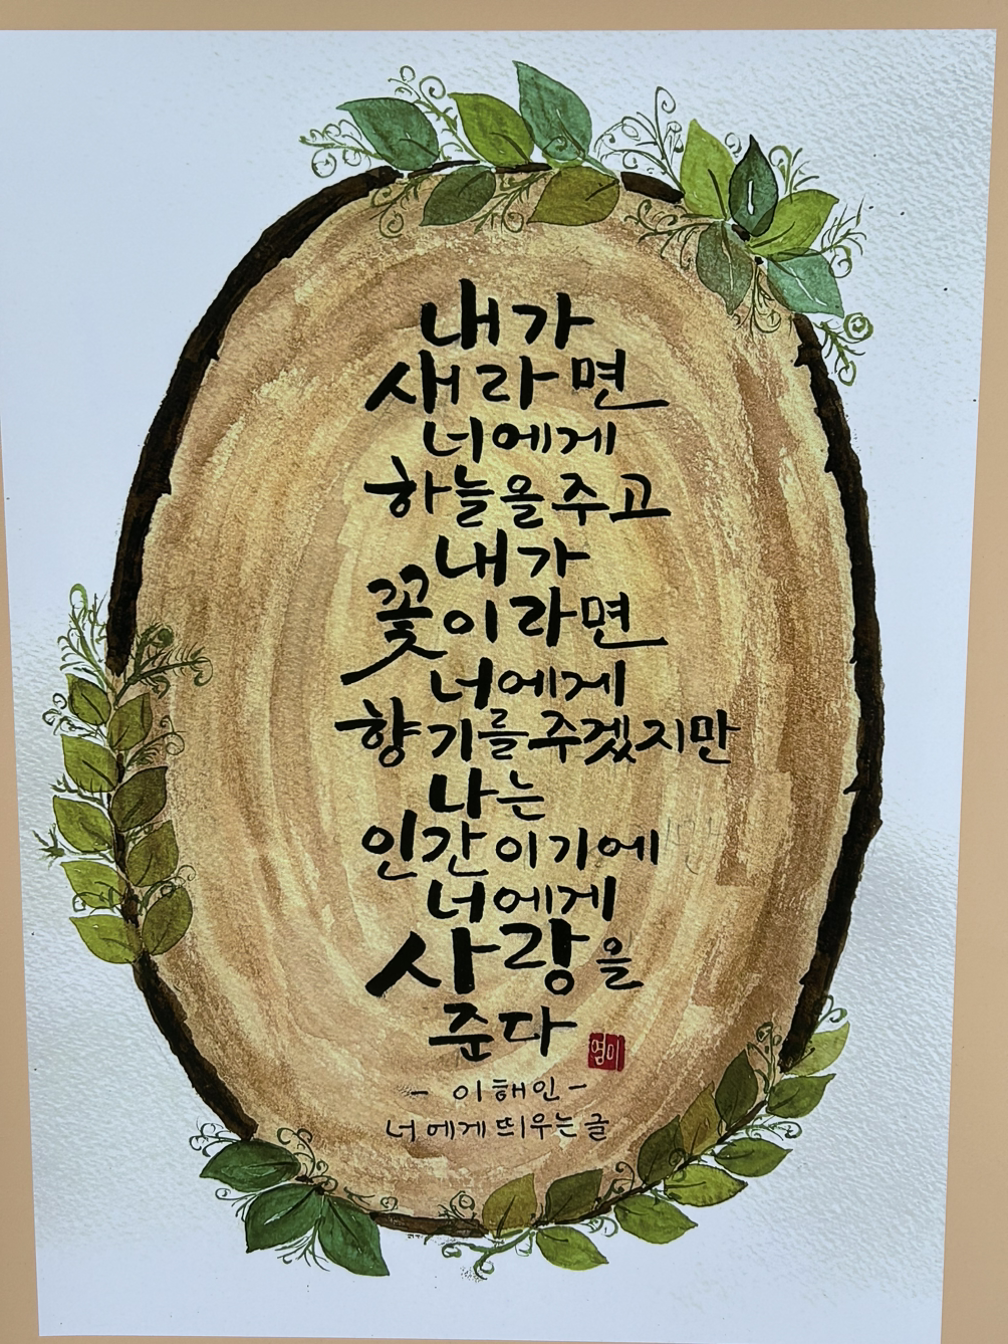 내가
새라면
너에게
하늘을 주고
내가
꽃이라면
너에게
향기를 주겠지만
나는
인간이기에
너에게
사랑을
준다
영이
- 이해인 -
너에게 띄우는 글